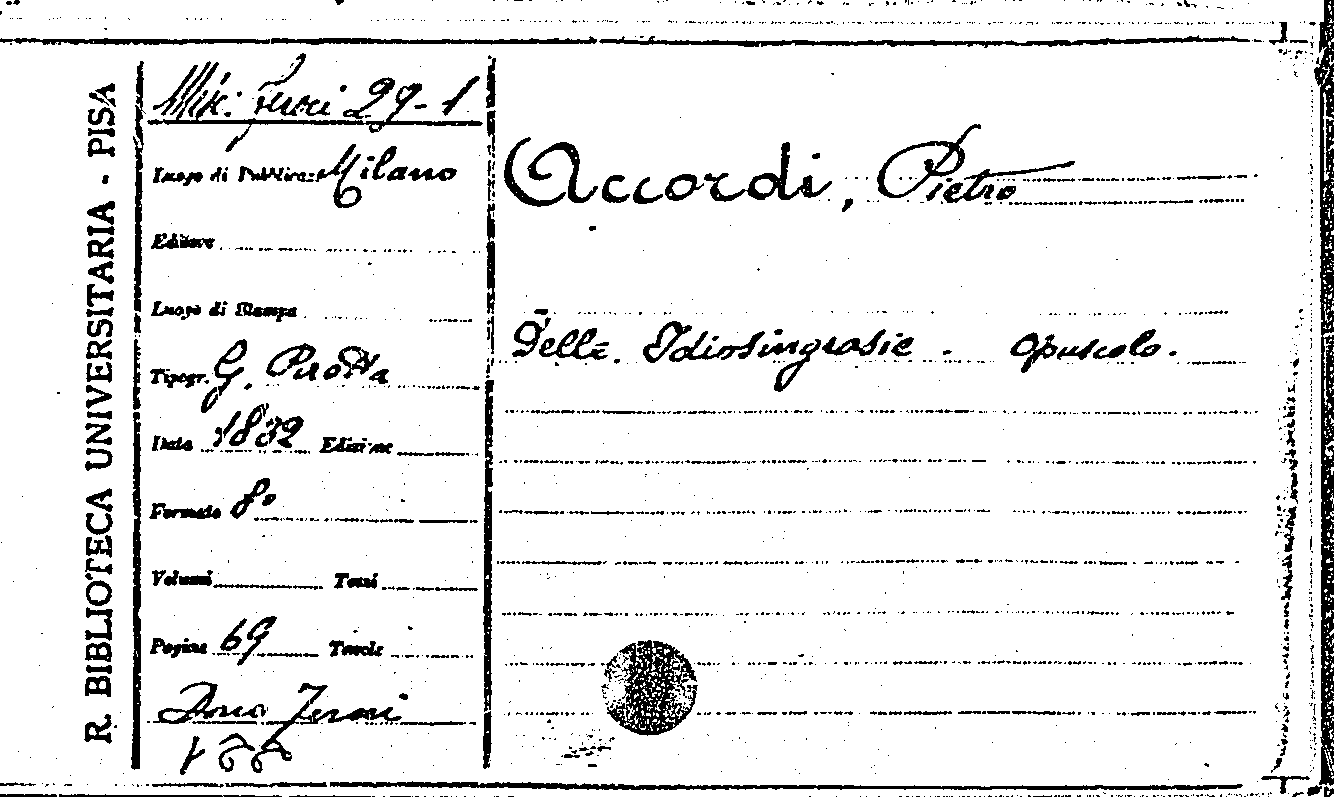 R. BIBLIOTECA UNIVERSITARIA - PISA
Misc. Feroci 29-1
Luogo di Pubblicaz. Milano
Editore
Luogo di Stampa
Tipogr. G. Pirotta
Data 1832 Edizione
Formato 8°
Volumi Tomi
Pagine 69 Tavole
Dono Feroci
Accordi, Pietro
Delle Idiosingrasie. Opuscolo.